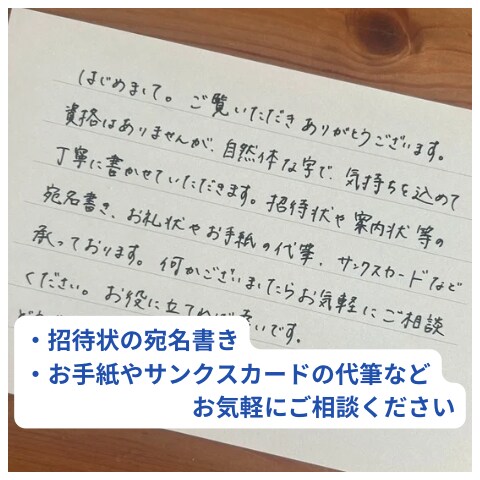 はじめまして。ご覧いただきありがとうございます。
資格はありませんが、自然体な字で、気持ちを込めて
丁寧に書かせていただきます。招待状や案内状等の
宛名書き、お礼状やお手紙の代筆、サンクスカードなど
承っております。何かございましたらお気軽にご相談
ください。お役に立てれば幸いです。
・招待状の宛名書き
・お手紙やサンクスカードの代筆など
お気軽にご相談ください